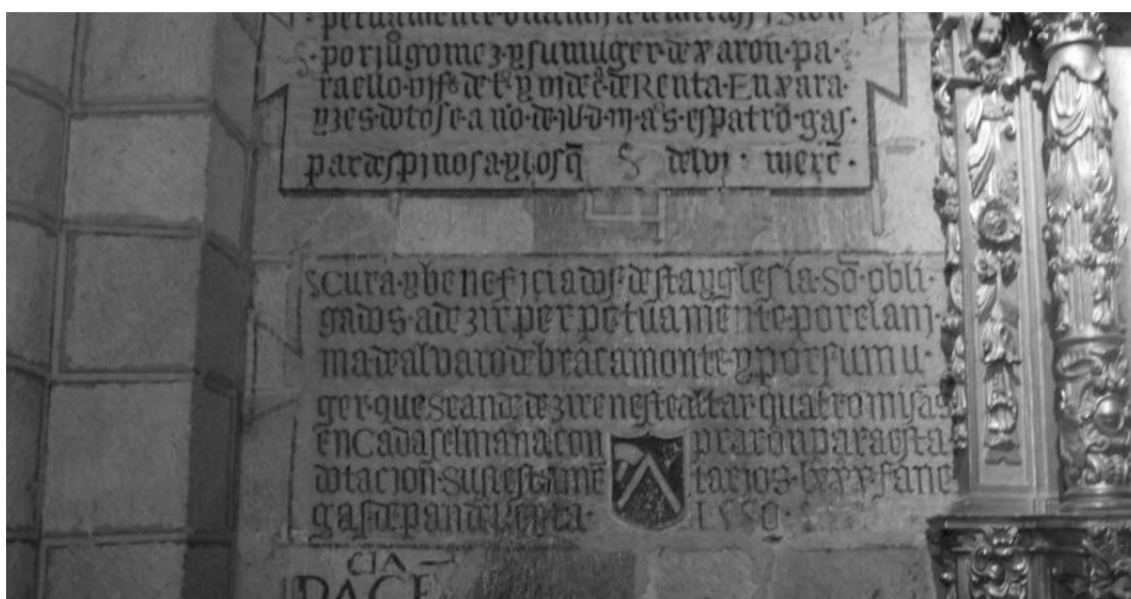 S· por juº gomez· y su muger· de xaron· pa·
raello· vj fˢ de tº y vj de cª de Renta· En xara·
yzes· dotose a no· de jU· d· m· a s· es patrō· gas·
par despinosa· y los q̄ S delvi· merc̄·
S Cura· y beneficiados· desta yglesia· Sō· obli·
gados· a dezir perpetuamente· por el anj·
ma de alvaro de bracamonte· y por su mu·
ger· que sean de dezir en este altar quatro misas
en Cada selmana con praron para esta
dotacion· sus testamē tarios· lxxx· fane
gas de pan de Renta· 1550·
CIA
PACE